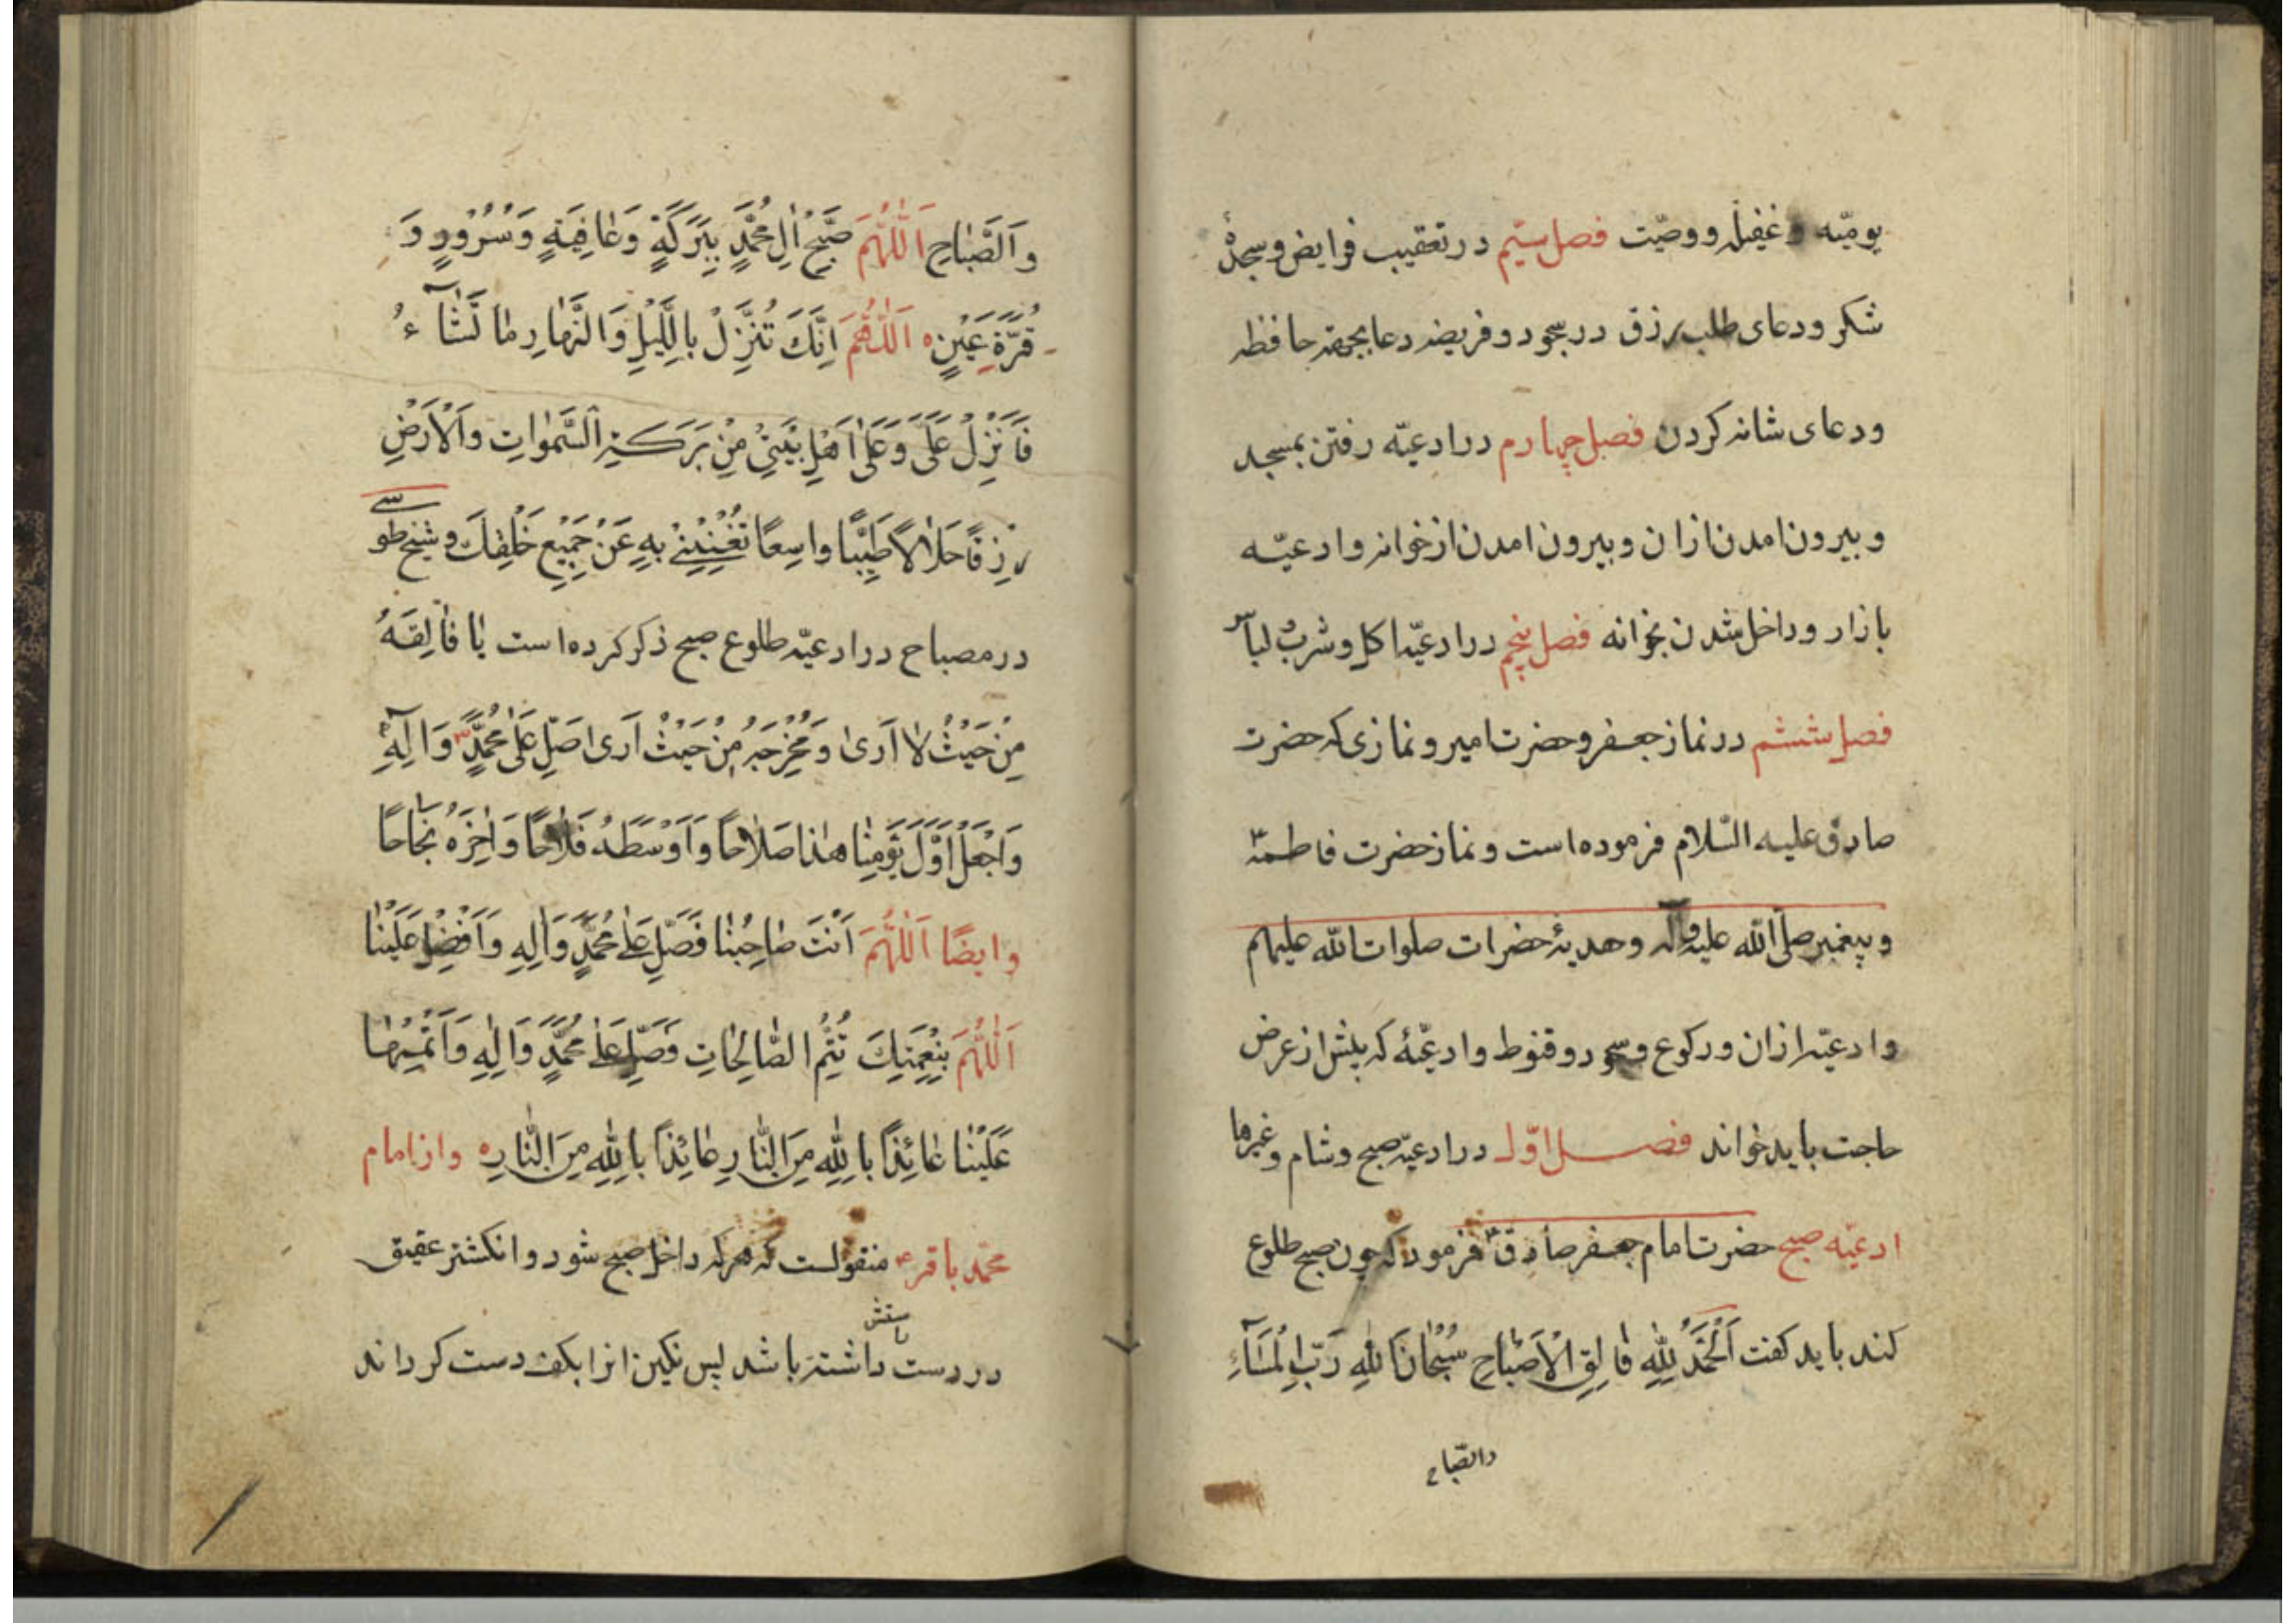 یومیّه و غفیله و وصیّت فصل سیّم در تعقیب فرایض و سجدهٔ
شکر و دعای طلب رزق در سجود و فریضه دعا بجهة حافظه
و دعای شانه کردن فصل چهارم در ادعیّه رفتن بمسجد
و بیرون امدن ازان و بیرون امدن از خوانه و ادعیّه
بازار و داخل شدن بخوانه فصل پنجم در ادعیّه اکل و شرب و لباس
فصل ششم در نماز جعفر و حضرت امیر و نمازی که حضرت
صادق علیه السّلام فرموده است و نماز حضرت فاطمه
و پیغمبر صلی اللّه علیه و آله و هدیهٔ حضرات صلوات اللّه علیهم
و ادعیّه اذان و رکوع و سجود و قنوط و ادعیّهٔ که پیش از عرض
حاجت باید خواند فصل اوّل در ادعیّه صبح و شام و غیرها
ادعیّه صبح حضرت امام جعفر صادق ؑ فرمود که چون صبح طلوع
کند باید کفت اَلْحَمْدُ لِلّٰهِ فٰالِقِ الْاَصْبٰاحِ سُبْحٰانَ اللّٰهِ رَبِّ الْمَسَآءِ
والصّباح
وَالصَّبٰاحِ اَللّٰهُمَّ صَبِّحْ اٰلَ مُحَمَّدٍ بِبَرَكَةٍ وَعٰافِيَةٍ وَسُرُورٍ وَ
قُرَّةِ عَيْنٍ اَللّٰهُمَّ اِنَّكَ تُنَزِّلُ بِاللَّيْلِ وَالنَّهٰارِ مٰا تَشٰآءُ
فَاَنْزِلْ عَلَيَّ وَعَلٰى اَهْلِ بَيْتِيْ مِنْ بَرَكَةِ السَّمٰوٰاتِ وَالْاَرْضِ
رِزْقًا حَلٰالًا طَيِّبًا وٰاسِعًا تُغْنِيْنِيْ بِهِ عَنْ جَمِيْعِ خَلْقِكَ و شیخ طوسی
در مصباح در ادعیّه طلوع صبح ذکر کرده است یٰا فٰالِقَهُ
مِنْ حَيْثُ لٰا اَرٰى وَمُخْرِجَهُ مِنْ حَيْثُ اَرٰى صَلِّ عَلٰى مُحَمَّدٍ وَاٰلِهِ
وَاجْعَلْ اَوَّلَ يَوْمِنٰا هٰذٰا صَلٰاحًا وَاَوْسَطَهُ فَلٰاحًا وَاٰخِرَهُ نَجٰاحًا
وایضًا اَللّٰهُمَّ اَنْتَ صٰاحِبُنٰا فَصَلِّ عَلٰى مُحَمَّدٍ وَاٰلِهِ وَاَفْضِلْ عَلَيْنٰا
اَللّٰهُمَّ بِنِعْمَتِكَ تَتِمُّ الصّٰالِحٰاتِ فَصَلِّ عَلٰى مُحَمَّدٍ وَاٰلِهِ وَاَتْمِمْهٰا
عَلَيْنٰا عٰائِذًا بِاللّٰهِ مِنَ النّٰارِ عٰائِذًا بِاللّٰهِ مِنَ النّٰارِ و از امام
محمّد باقر ؑ منقولست که هر که داخل صبح شود و انکشتر عقیق
در دست راستش داشته باشد پس نکین انرا بکف دست کرداند